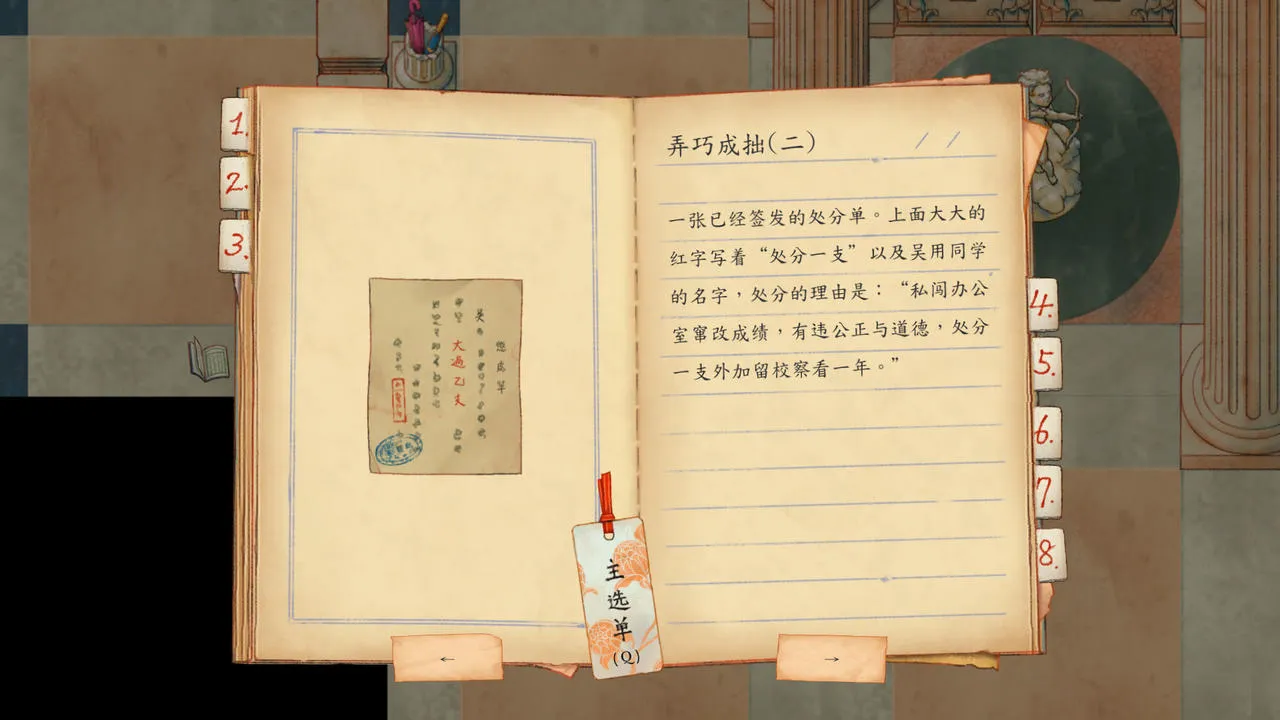 1.
2.
3.
大過乙支
弄巧成拙(二)
一张已经签发的处分单。上面大大的
红字写着“处分一支”以及吴用同学
的名字，处分的理由是：“私闯办公
室窜改成绩，有违公正与道德，处分
一支外加留校察看一年。”
4.
5.
6.
7.
8.
主选单
(Q)
←
→